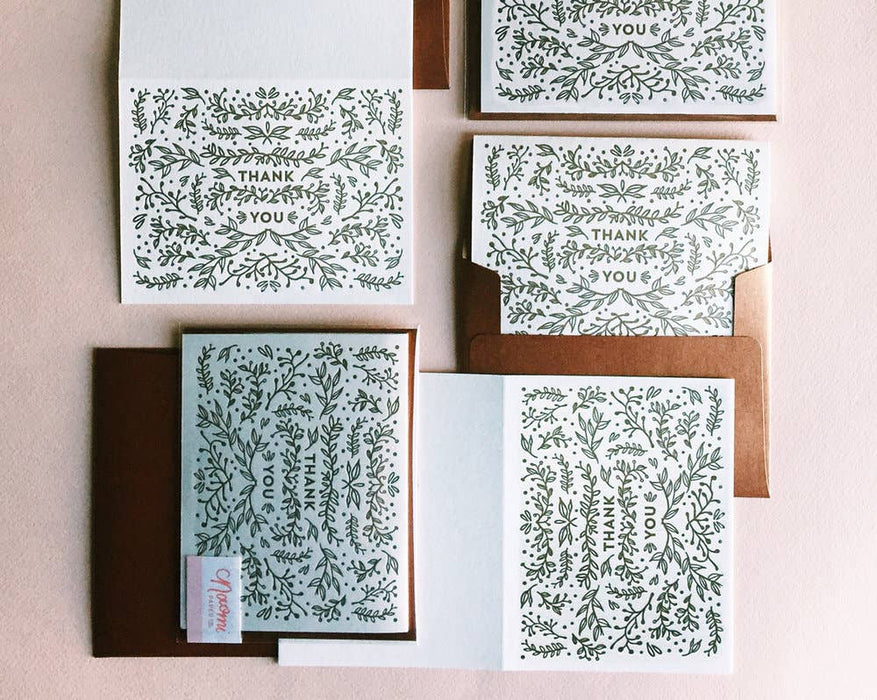 YOU
THANK
YOU
THANK
YOU
THANK
YOU
Naomi
PAPER CO.
THANK
YOU